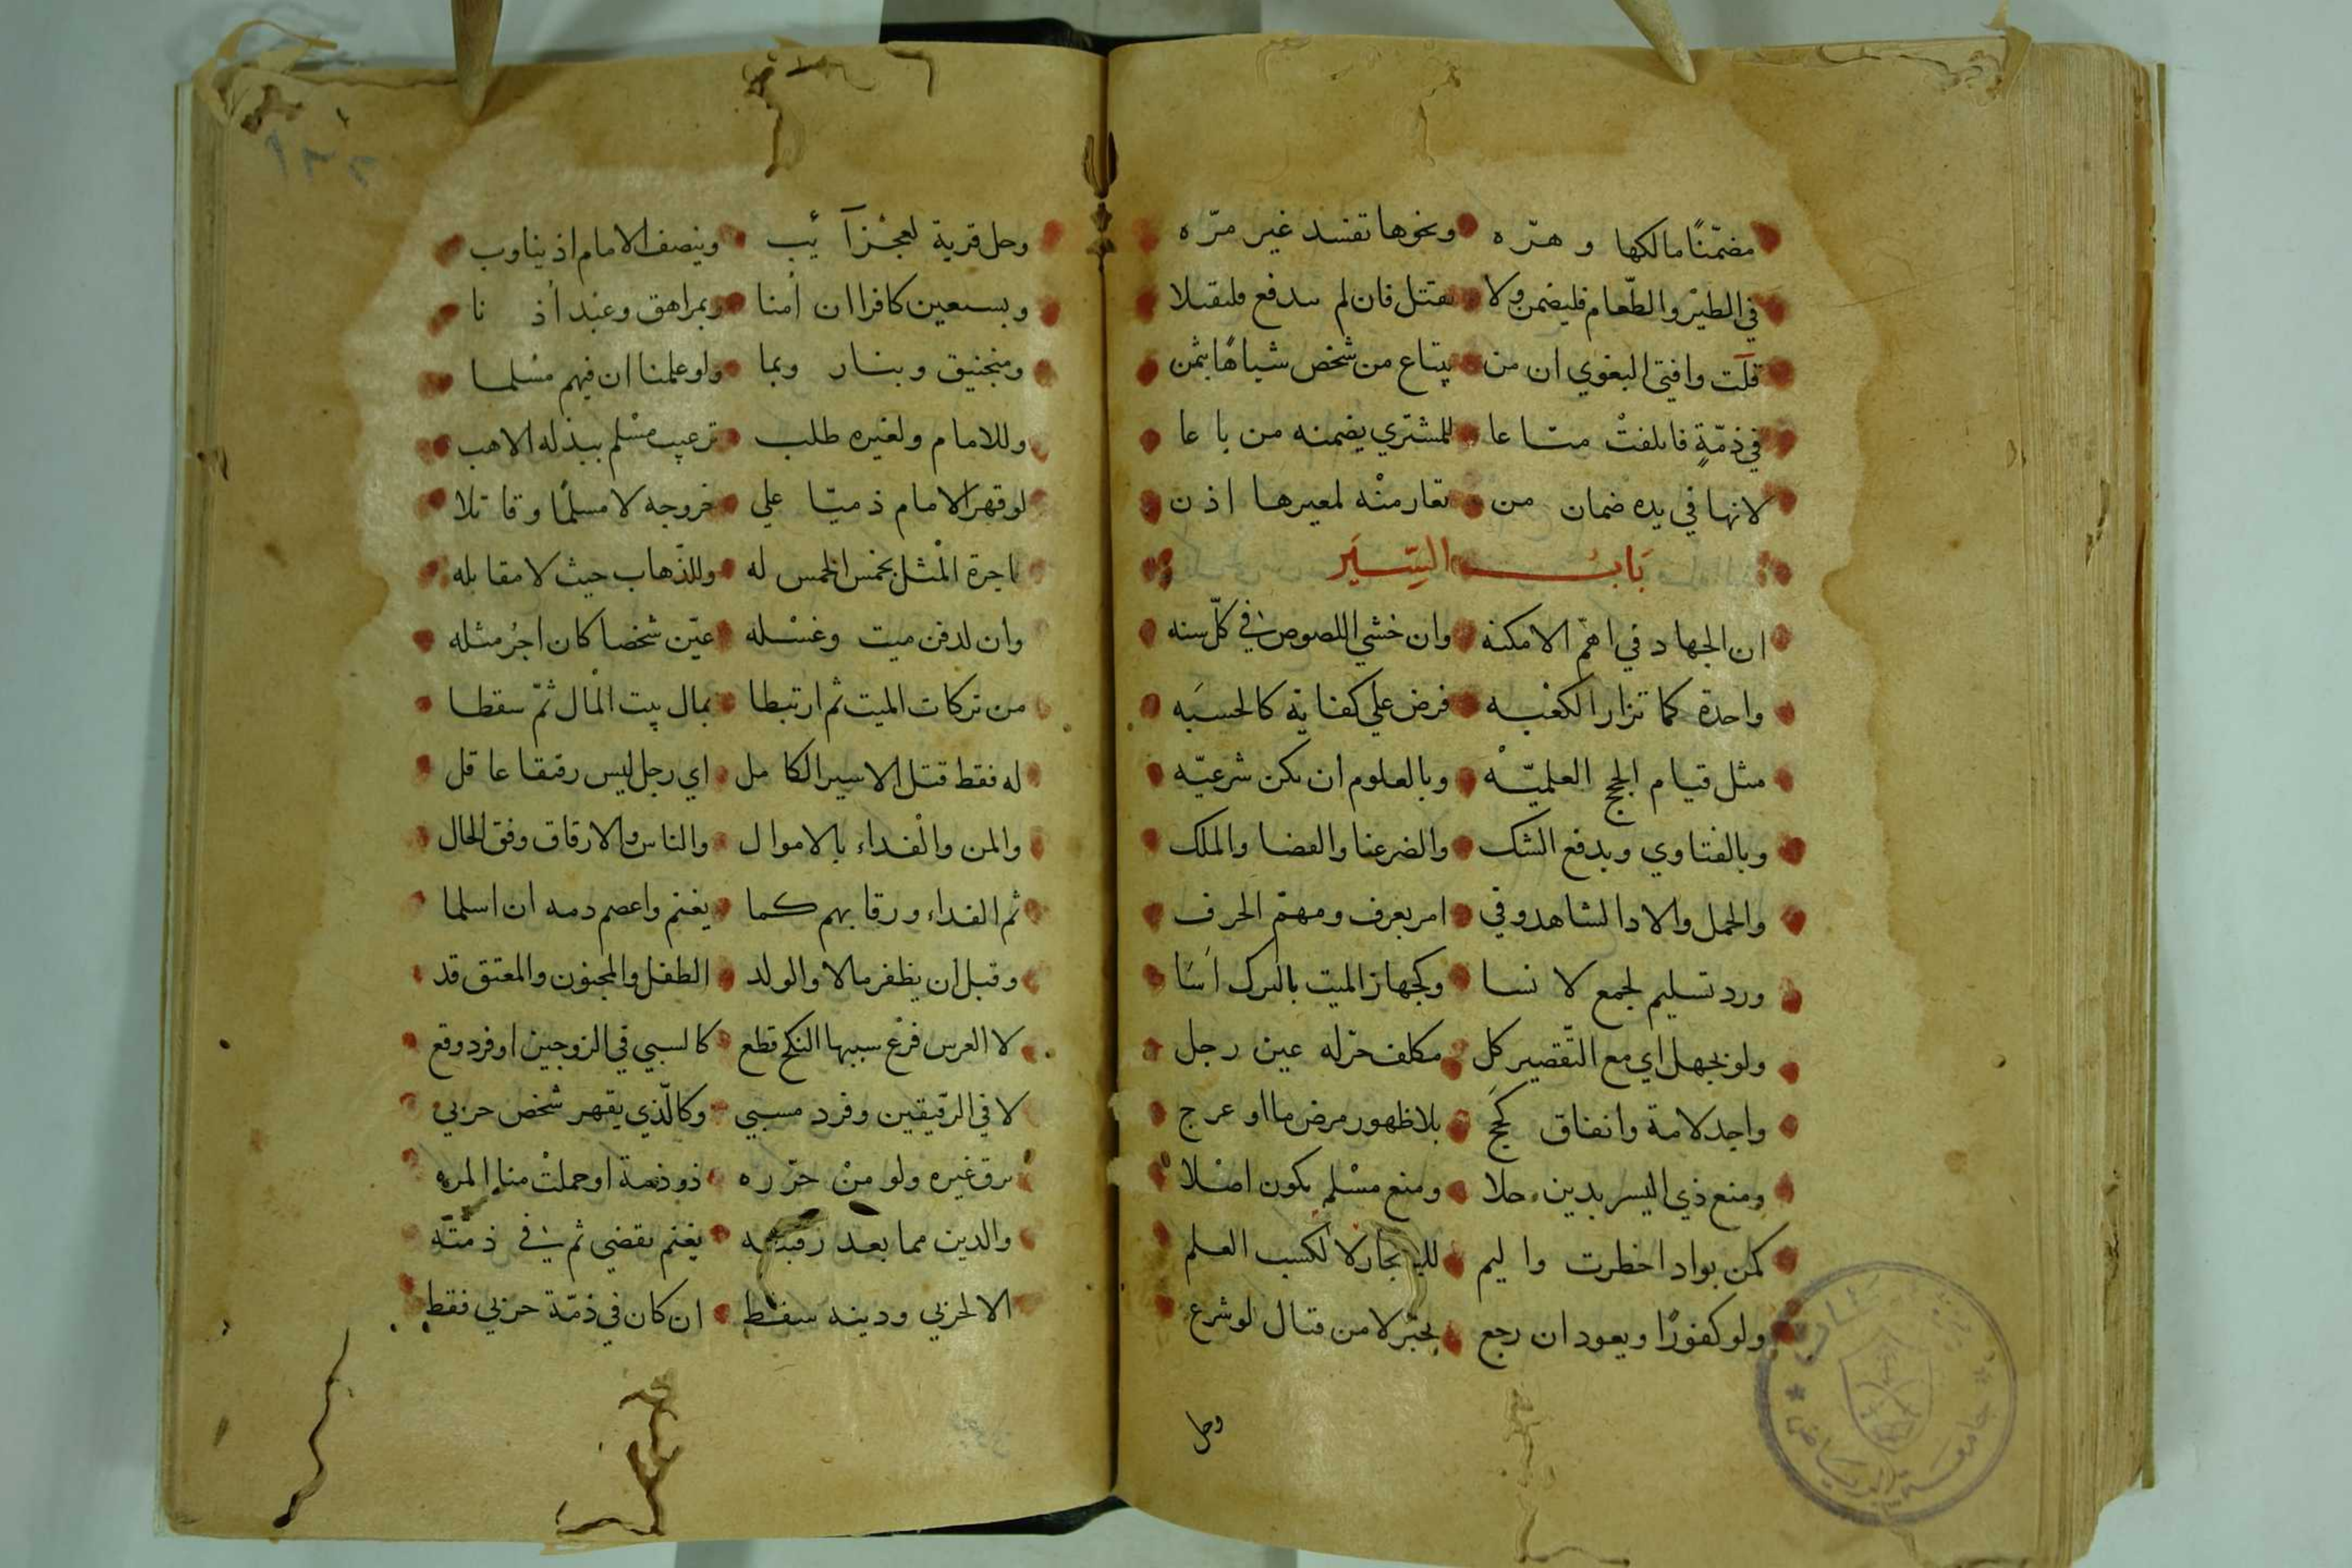 مضمّنًا مالكها و هرّه ونحوها تفسد غير مرّه
في الطيْر والطّعام فليضمن ولا تقتل فان لم تدفع فليقتلا
قلت وافتي البغوي ان من يبتاع من شخص شياهًا بثمن
في ذمّةٍ فاتلفتْ متاعا للمشتري يضمنه من باعا
لانها في يده ضمان من تعار منْه لمعيرها اذن
بَابُ السِّيَر
ان الجهاد في اهمّ الامكنه وان خشي اللصوص في كلّ سنه
واحدة كما تزار الكعْبه فرض علي كفاية كالحسبَه
مثل قيام الحجج العلميّه وبالعلوم ان تكن شرعيّه
وبالفتاوي وبدفع الشك والضر عنا والقضا والملك
والحمل والادا لشاهد وفي امر بعرف ومهمّ الحرف
ورد تسليم لجمع لا نسا وكجهاز الميت بالترك اَسَا
ولو بجهل اي مع التّقصير كل مكلف حرّ له عين رجل
واجد لامة وانفاق كَحَجّ بلا ظهور مرض ما او عرج
ومنع ذي اليسر بدين حلا ومنع مسْلم يكون اصْلا
كمن بواد اخطرت واليم للاتجار لا لكسب العلم
ولو كفورًا ويعود ان رجع بجبْر لا من قتال لو شرع
وحل
وحل قرية لعجْز آئب وينصف الامام اذ يناوب
ويستعين كافرا ان اُمنا وبمراهق وعبْد اُذنا
ومنجنيق وبنار وبما ولو علمنا ان فيهم مسْلما
وللامام ولغيره طلب ترغيب مسْلم ببذله الاهب
لو قهر الامام ذميّا علي خروجه لا مسلمًا وقاتلا
باجرة الْمثل بخمس الخمس له وللذّهاب حيث لا مقابله
وان لدفن ميت وغسْله عيّن شخصا كان اجُر مثله
من تركات الميت ثم ارتبطا بمال بيت الْمال ثمّ سقطا
له فقط قتل الاسير الكامل اي رجل ليس رقيقا عاقل
والمن والْفداء بالاموال والناس والارقاق وفق الحال
ثم الفداء ورقابهم كما يغنم واعصم دمه ان اسلما
وقبل ان يظفر مالا والولد الطفل والمجنون والمعتق قد
لا العرس فرْع سبيها النكح قطع كالسبي في الزوجين او فرد وقع
لا في الرّقيقين وفرد مسبي وكالّذي يقهر شخص حربي
برق غيره ولو منْ حرّره ذو ذمة او حملتْ منا المره
والدين مما بعد رقيته يغنم يقضي ثم في ذمّته
الا لحربي ودينه سقط ان كان في ذمّة حربي فقط
جامعة الرياض